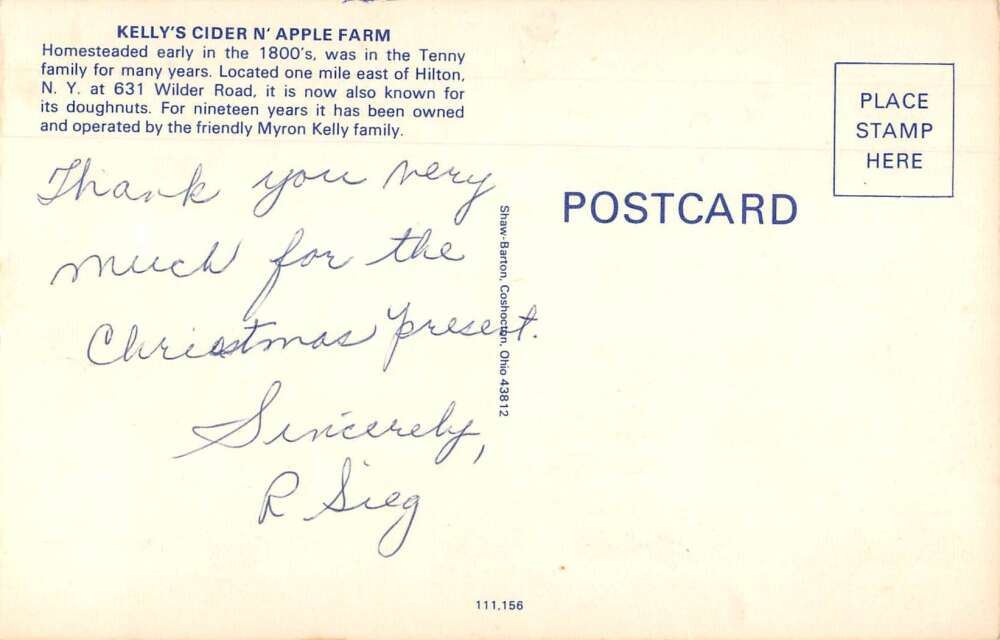 KELLY'S CIDER N' APPLE FARM
Homesteaded early in the 1800's, was in the Tenny
family for many years. Located one mile east of Hilton,
N. Y. at 631 Wilder Road, it is now also known for
its doughnuts. For nineteen years it has been owned
and operated by the friendly Myron Kelly family.
Thank you very
much for the
Christmas present.
Sincerely,
R Sieg
Shaw-Barton, Coshocton, Ohio 43812
POSTCARD
PLACE
STAMP
HERE
111,156